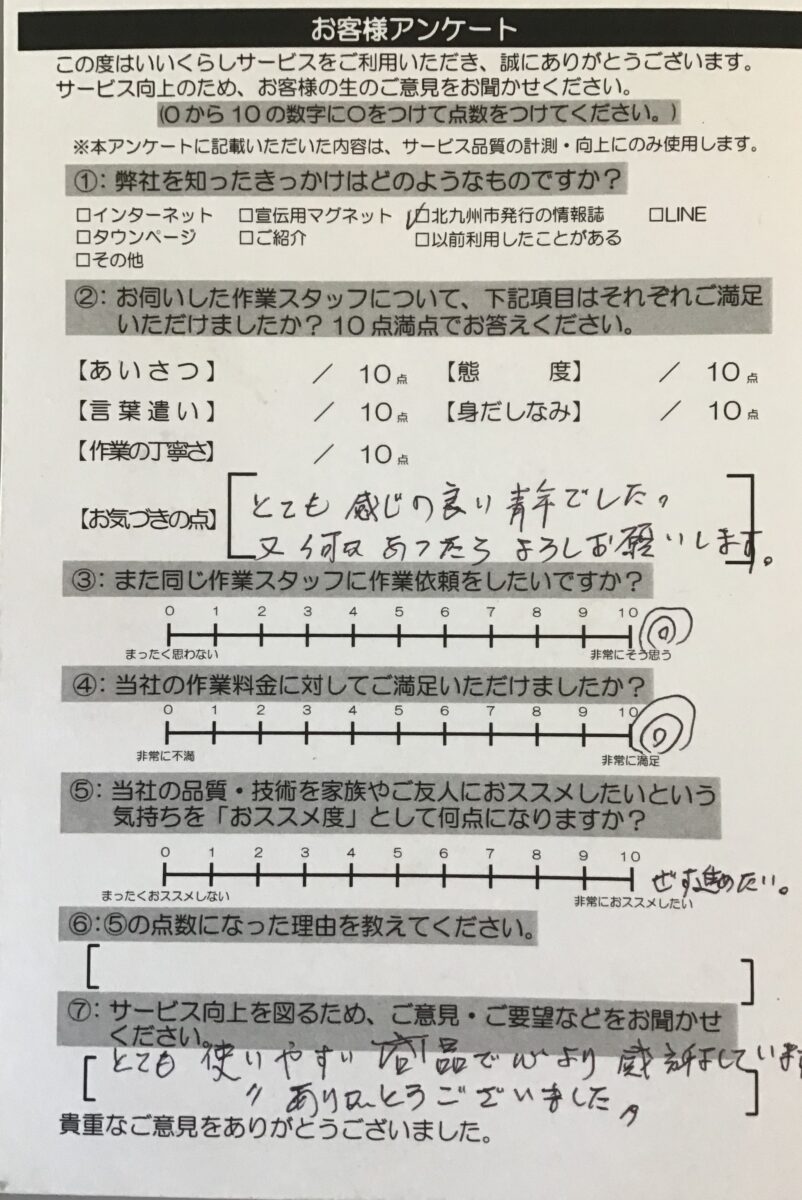 お客様アンケート
この度はいいくらしサービスをご利用いただき、誠にありがとうございます。
サービス向上のため、お客様の生のご意見をお聞かせください。
(0から10の数字に○をつけて点数をつけてください。)
※本アンケートに記載いただいた内容は、サービス品質の計測・向上にのみ使用します。
①：弊社を知ったきっかけはどのようなものですか？
□インターネット □宣伝用マグネット ☑北九州市発行の情報誌 □LINE
□タウンページ □ご紹介 □以前利用したことがある
□その他
②：お伺いした作業スタッフについて、下記項目はそれぞれご満足
いただけましたか？10点満点でお答えください。
【あいさつ】 / 10点 【態度】 / 10点
【言葉遣い】 / 10点 【身だしなみ】 / 10点
【作業の丁寧さ】 / 10点
【お気づきの点】
とても感じの良い青年でした。
又何かあったらよろしお願いします。
③：また同じ作業スタッフに作業依頼をしたいですか？
0 1 2 3 4 5 6 7 8 9 10
まったく思わない 非常にそう思う
④：当社の作業料金に対してご満足いただけましたか？
0 1 2 3 4 5 6 7 8 9 10
非常に不満 非常に満足
⑤：当社の品質・技術を家族やご友人におススメしたいという
気持ちを「おススメ度」として何点になりますか？
0 1 2 3 4 5 6 7 8 9 10 ぜす進めたい。
まったくおススメしない 非常におススメしたい
⑥：⑤の点数になった理由を教えてください。
⑦：サービス向上を図るため、ご意見・ご要望などをお聞かせ
ください。
とても使いやすい商品で心より感謝しています
〃ありがとうございました。
貴重なご意見をありがとうございました。